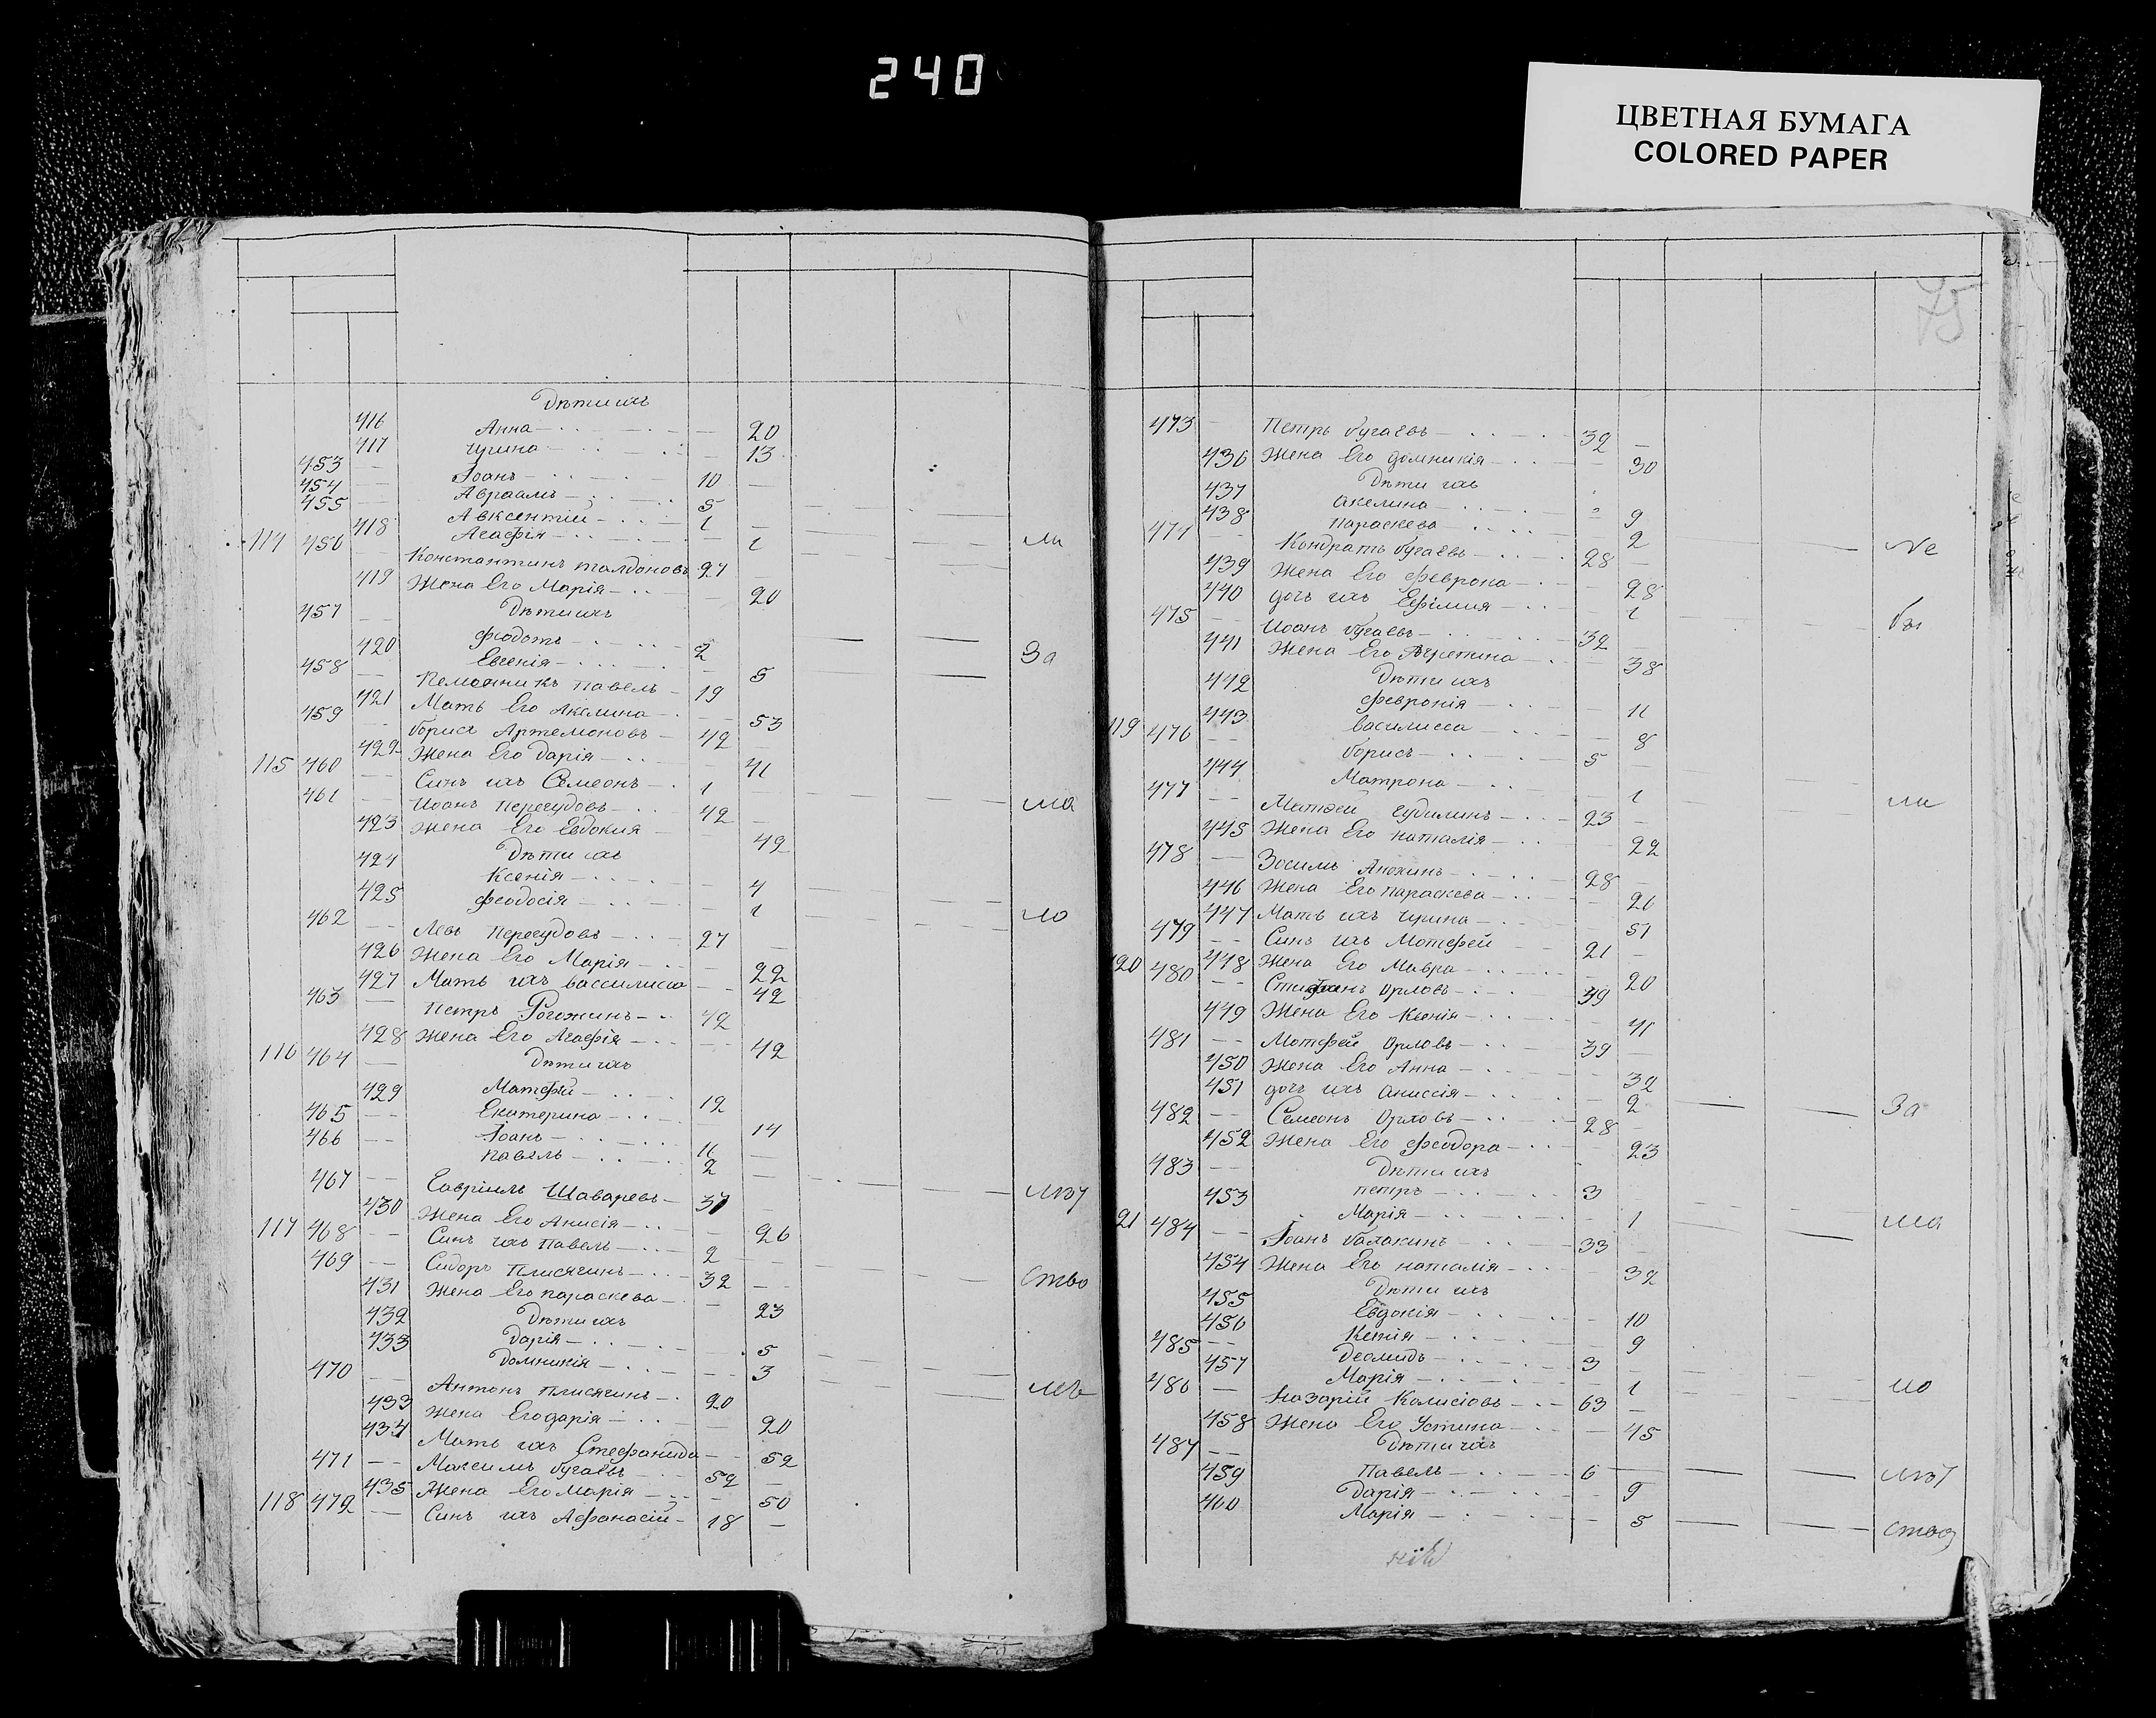 240
ЦВЕТНАЯ БУМАГА
COLORED PAPER
75
Дѣти ихъ
416 Анна 20
417 Ирина 13
453 Іоанъ 10
454 Авраамъ 5
455 Авксентій 1
418 Агафія 1
114 456 Константинъ Талдоновъ 27 ли
419 Жена Его Марія 20
Дѣти ихъ
457 Феодотъ 2
420 Евгенія 5 За
458 Племянникъ Павелъ 19
421 Мать Его Акелина 53
459 Борисъ Артемоновъ 42
422 Жена Его Дарія 41
115 460 Синъ ихъ Семеонъ 1
461 Иоанъ Пересудовъ 42 ма
423 Жена Его Евдокия 42
Дѣти ихъ
424 Ксенія 4
425 Феодосія 1
462 Левъ Пересудовъ 27 ло
426 Жена Его Марія 22
427 Мать ихъ Вассилиса 42
463 Петръ Рогожинъ 42
428 Жена Его Агафія 42
116 464 Дѣти ихъ
Матфей 12
429 Екатерина 14
465 Іоанъ 11
466 Павелъ 2
467 Гавріилъ Шаваревъ 37
430 Жена Его Анисія 26
117 468 Синъ ихъ Павелъ 2
469 Сидоръ Плисячинъ 32 ство
431 Жена Его Параскева 23
Дѣти ихъ
432 Дарія 5
433 Домникія 3
470 Антонъ Плисячинъ 20
433 Жена Его Дарія 20
434 Мать ихъ Стефанида 52
471 Максимъ Бугаевъ 52
435 Жена Его Марія 50
118 472 Синъ ихъ Афонасій 18
473 Петръ Бугаевъ 32
436 Жена Его Домникія 30
Дѣти ихъ
437 Акелина 9
438 Параскева 2
474 Кондратъ Бугаевъ 28 не
439 Жена Его Феврона 28
440 дочь ихъ Ефимия 1
475 Иоанъ Бугаевъ 32 бы
441 Жена Его 38
Дѣти ихъ
442 Февронія 11
443 Василисса 8
119 476 Борисъ 5
444 Матрона 1
477 Матфей Судилинъ 23 ли
445 Жена Его Наталія 22
478 Зосимъ Анохинъ 28
446 Жена Его Параскева 26
447 Мать ихъ Ирина 51
479 Синъ ихъ Мотфей 21
448 Жена Его Мавра 20
120 480 Стифанъ Орловъ 39
449 Жена Его Ксенія 41
481 Мотфей Орловъ 39
450 Жена Его Анна 32
451 дочь ихъ Аниссія 2
482 Семеонъ Орловъ 28 За
452 Жена Его Феодора 23
Дѣти ихъ
483 Петръ 3
453 Марія 1
21 484 Іоанъ Балакинъ 33 ма
454 Жена Его Наталія 32
Дѣти ихъ
455 Евдокія 10
456 Ксенія 9
485 Деомидъ 3
457 Марія 1
486 Назарій Колисіовъ 63 ло
458 Жена Его Устина 45
Дѣти ихъ
487 Павелъ 6
459 Дарія 9
460 Марія 5